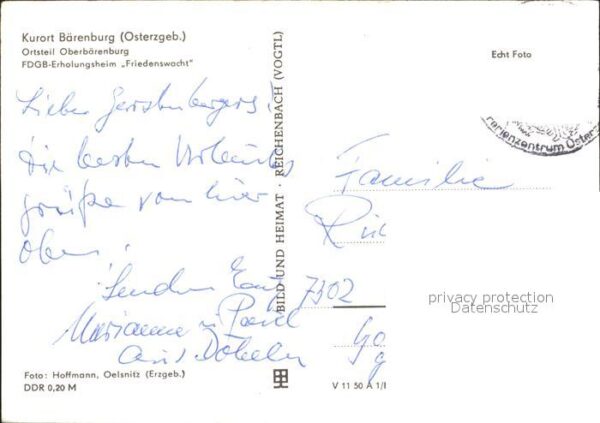 Kurort Bärenburg (Osterzgeb.)
Ortsteil Oberbärenburg
FDGB-Erholungsheim „Friedenswacht"
Echt Foto
Liebe Gerstenbergers!
Die besten Urlaubs
grüße von hier
oben!
Senden Euch
Marianne u.
aus Döbeln
BILD UND HEIMAT · REICHENBACH (VOGTL)
Ferienzentrum Osterz
Familie
7302
privacy protection
Datenschutz
Foto: Hoffmann, Oelsnitz (Erzgeb.)
DDR 0,20 M
V 11 50 A 1/